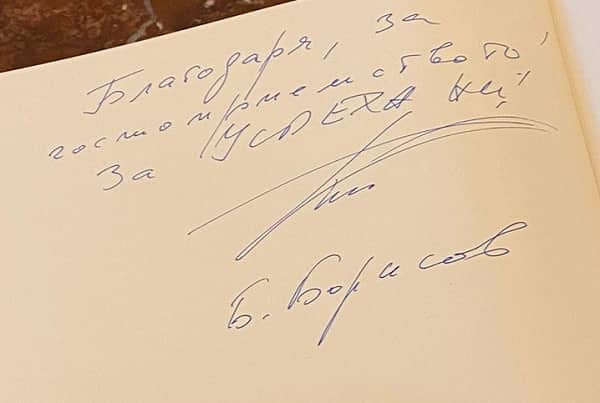 Благодаря, за
гостоприемството!
За УСПЕХА НИ!
Б. Борисов